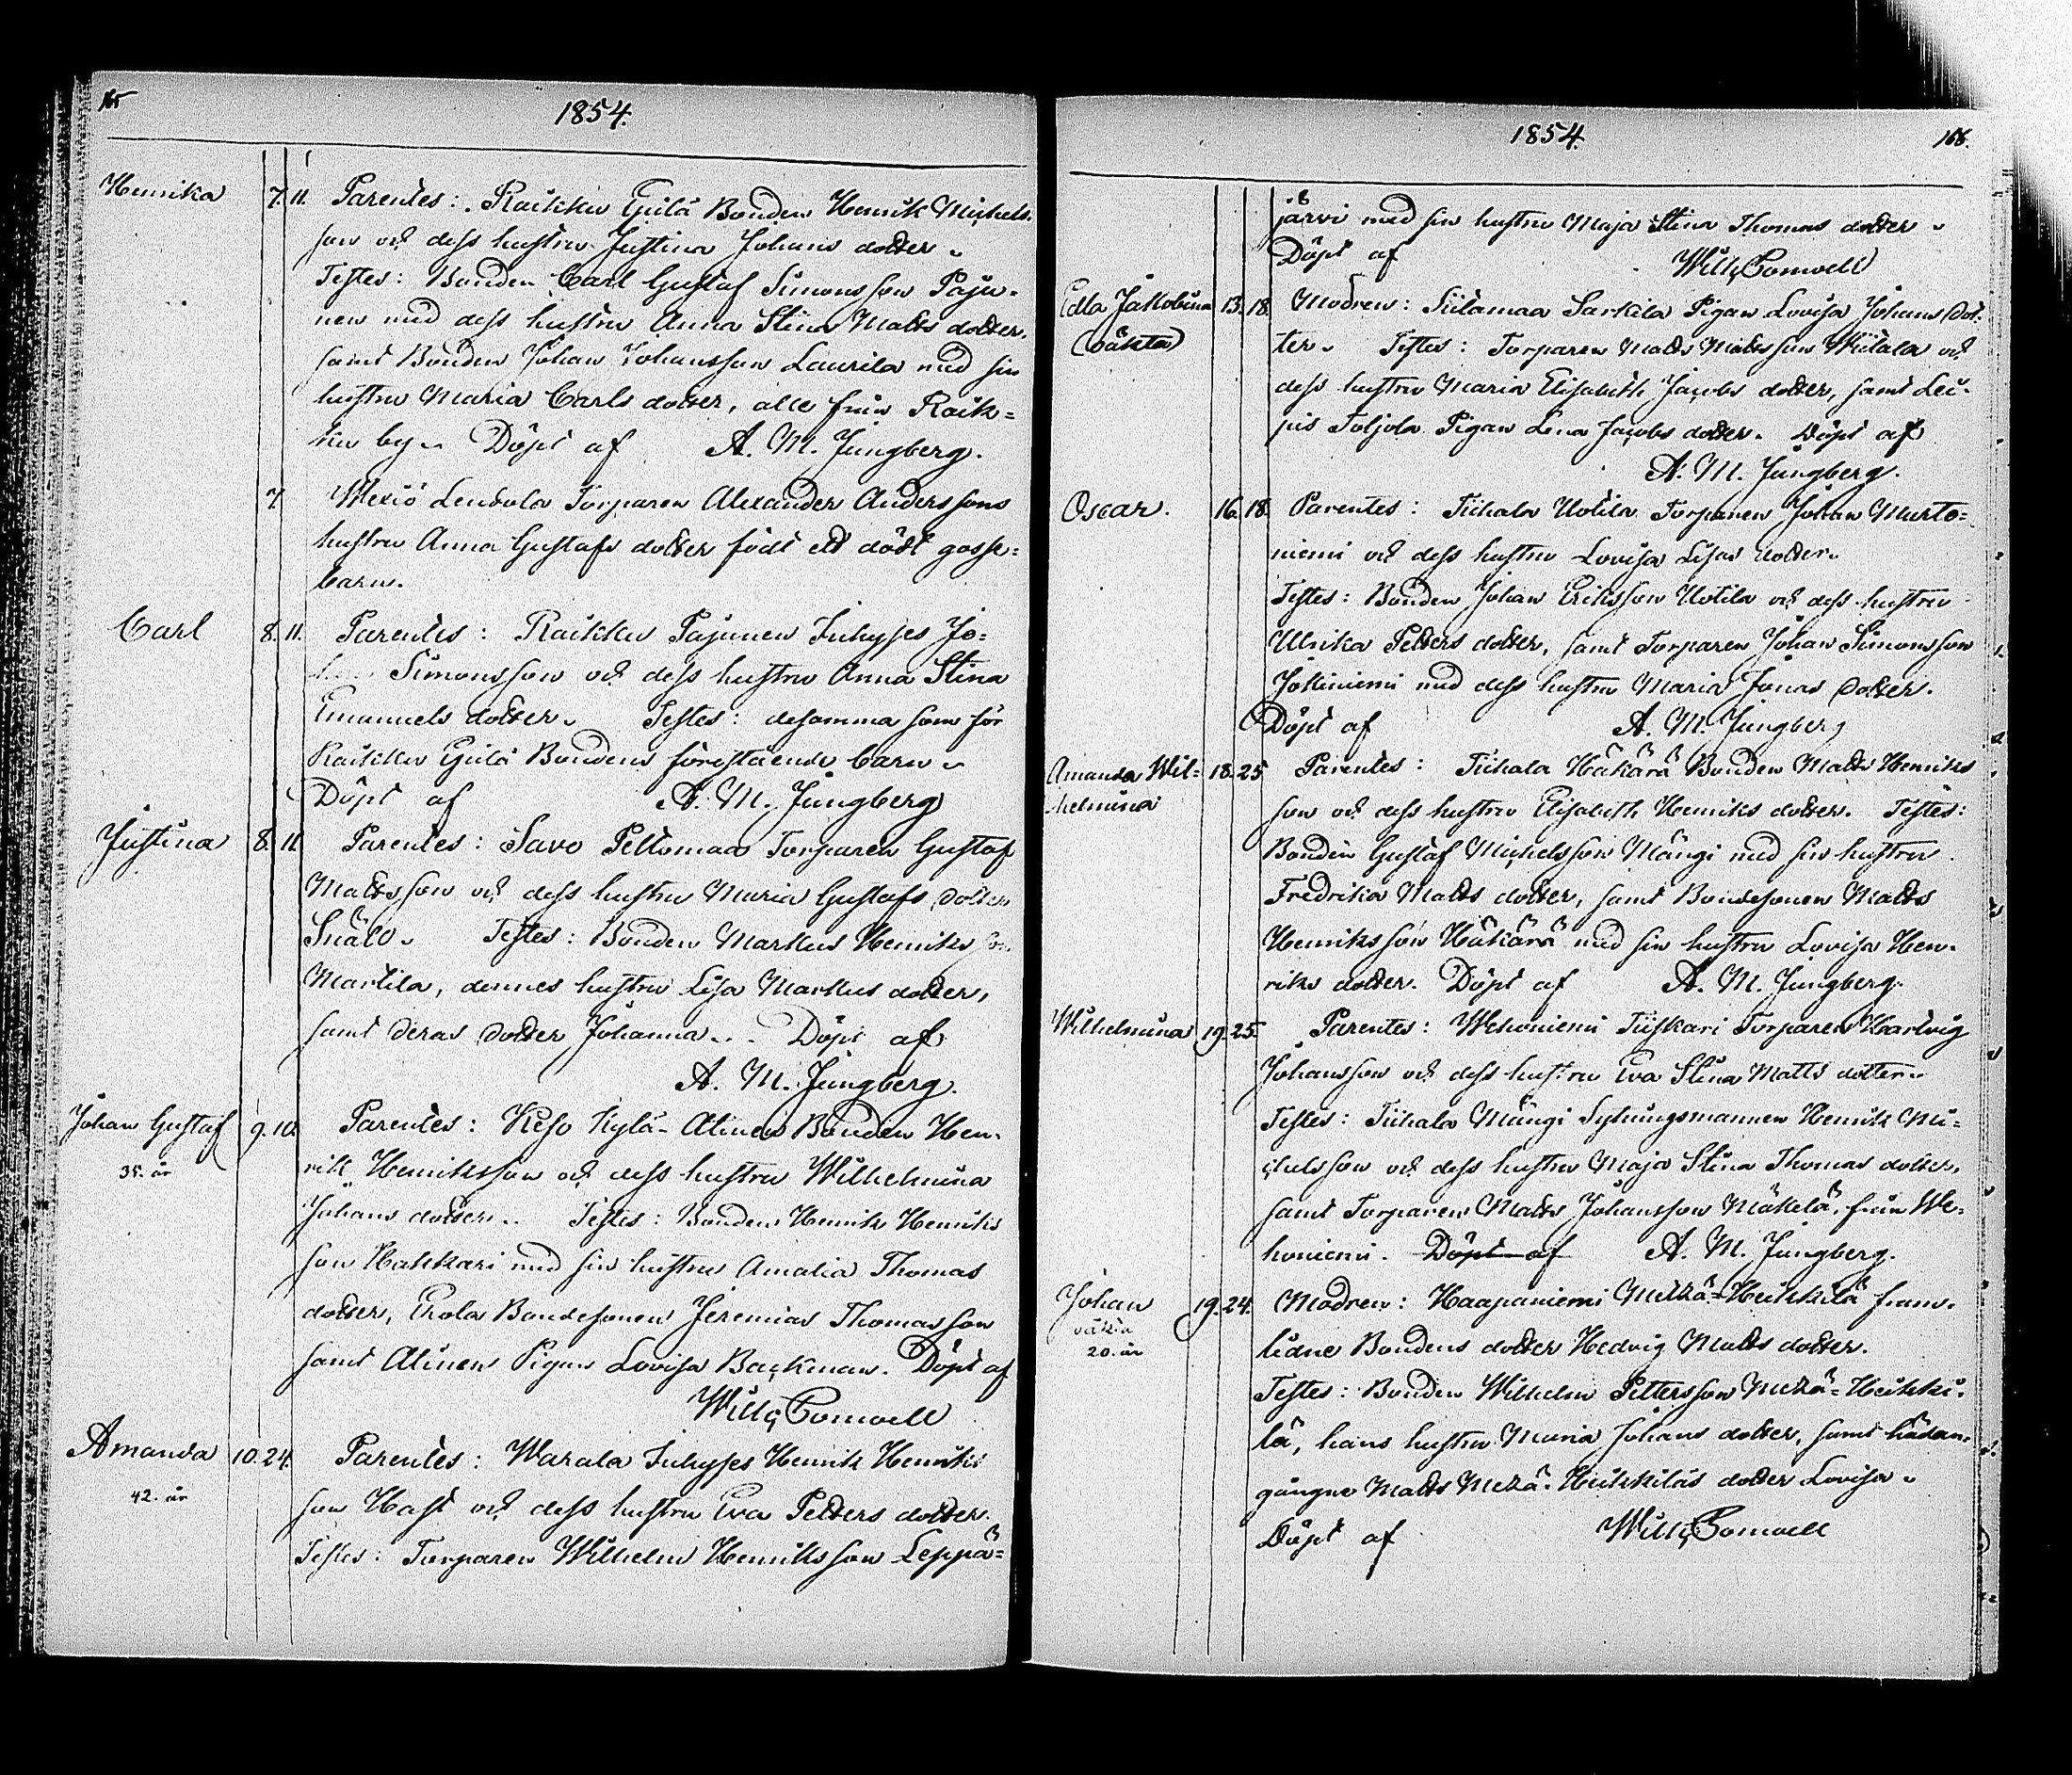 165
1854.
Henrika 7. 11. Parentes: Raikku Eskilä Bonden Henrik Michels
son och dess hustru Justina Johans dotter.
Testes: Bonden Carl Gustaf Simonsson Paju-
nen med dess hustru Anna Stina Matts dotter,
samt Bonden Johan Johansson Laurila med sin
hustru Maria Carls dotter, alle från Raik-
ku by. Döpt af A. M. Jungberg.
7. Wexiö Lendola Torparen Alexander Anderssons
hustru Anna Gustafs dotter födt ett dödt gosse-
barn.
Carl 8. 11. Parentes: Raikku Pajunen Inhyses Jo-
han Simonsson och dess hustru Anna Stina
Emanuels dotter. Testes: desamma som för
Raikku Eskilä Bondens förestående barn.
Döpt af A. M. Jungberg
Justina 8. 11. Parentes: Savo Peltomaa Torparen Gustaf
Mattsson och dess hustru Maria Gustafs dotter
Snäll. Testes: Bonden Markus Henriks son
Marttila, dennes hustru Lisa Markus dotter,
samt deras dotter Johanna. Döpt af
A. M. Jungberg.
Johan Gustaf 9. 10. Parentes: Keso Kylä-Alinen Bonden Hen-
35. år rik Henriksson och dess hustru Wilhelmina
Johans dotter. Testes: Bonden Henrik Henriks
son Hakkari med sin hustru Amalia Thomas
dotter, Erola Bondesonen Jeremias Thomasson
samt Alinen Pigan Lovisa Backman. Döpt af
Will. Bomvell
Amanda 10. 24. Parentes: Warala Inhyses Henrik Henriks
42. år son Hast och dess hustru Eva Petters dotter.
Testes: Torparen Wilhelm Henriksson Leppä-
1854.
166.
järvi med sin hustru Maja Stina Thomas dotter.
Döpt af Will. Bomvell
Edla Jakobina 13. 18. Modren: Siilamaa Sarkila Pigan Lovisa Johans dot-
(oäkta) ter. Testes: Torparen Matts Matsson Wiitala och
dess hustru Maria Elisabeth Jacobs dotter, samt Lei-
pis Toljola Pigan Lena Jacobs dotter. Döpt af
A. M. Jungberg.
Oscar. 16. 18. Parentes: Tiihala Uotila Torparen Johan Murto-
niemi och dess hustru Lovisa Lisas dotter.
Testes: Bonden Johan Eriksson Uotila och dess hustru
Ulrika Petters dotter, samt Torparen Johan Simonsson
Jokiniemi med dess hustru Maria Jonas dotter.
Döpt af A. M. Jungberg
Amanda Wil- 18. 25 Parentes: Tiihala Häkärä Bonden Matts Henriks
helmina son och dess hustru Elisabeth Henriks dotter. Testes:
Bonden Gustaf Michelsson Mängi med sin hustru
Fredrika Matts dotter, samt Bondesonen Matts
Henriksson Häkärä med sin hustru Lovisa Hen-
riks dotter. Döpt af A. M. Jungberg.
Wilhelmina 19. 25. Parentes: Wehoniemi Tiiskari Torparen Hartvig
Johansson och dess hustru Eva Stina Matts dotter.
Testes: Tiihala Mängi Sexmannen Henrik Mi-
chelsson och dess hustru Maja Stina Thomas dotter,
samt Torparen Matts Johansson Mäkelä, från We-
honiemi. Döpt af A. M. Jungberg.
Johan 19. 24. Modren: Haapaniemi Metzä-Heikkilä fram-
oäkta lidne Bondens dotter Hedvig Matts dotter.
20. år
Testes: Bonden Wilhelm Pettersson Metzä-Heikki-
lä, hans hustru Maria Johans dotter, samt hädan-
gångne Matts Metzä-Heikkiläs dotter Lovisa.
Döpt af Will. Bomvell